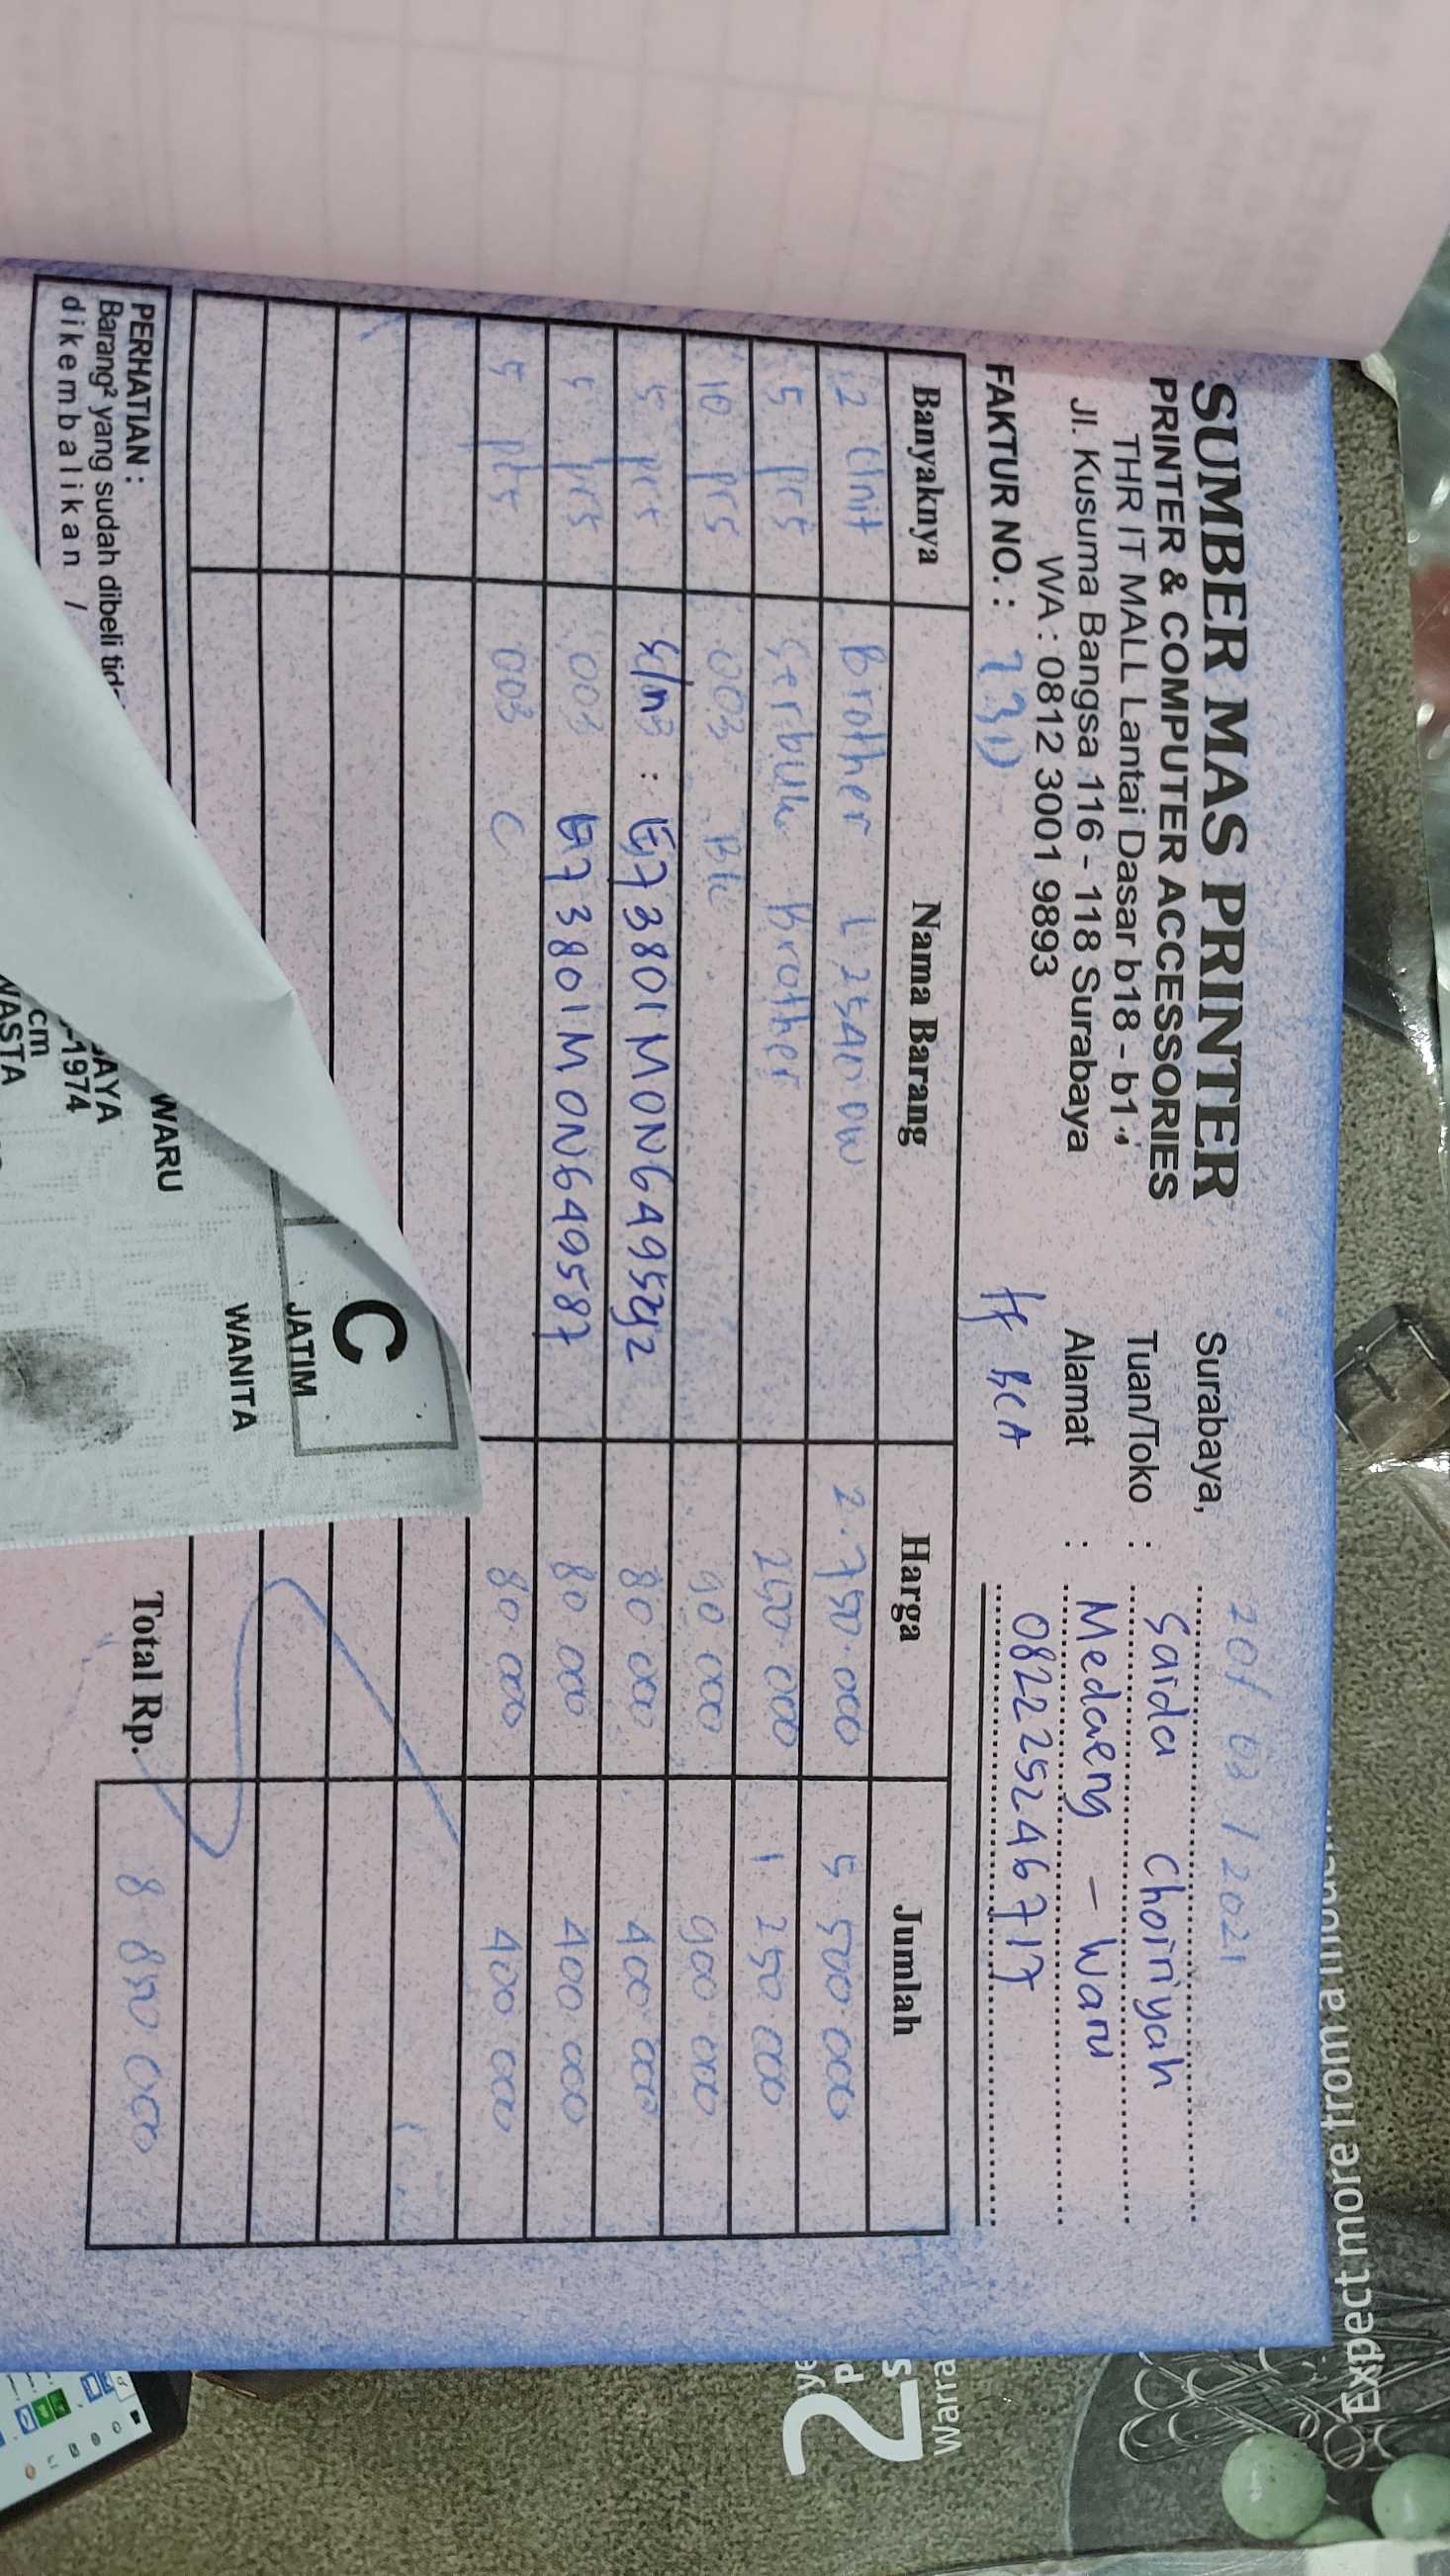 SUMBER MAS PRINTER
PRINTER & COMPUTER ACCESSORIES
THR IT MALL Lantai Dasar b18 - b1
Jl. Kusuma Bangsa 116 - 118 Surabaya
WA : 0812 3001 9893
Surabaya, 20/ 03 / 2021
Tuan/Toko : Saida Choiriyah
Alamat : Medaeng - Waru
082225246717
FAKTUR NO. : BCA
Banyaknya Nama Barang Harga Jumlah
2 Unit Brother L 2540 DW 2.750.000 5 500 000
5 pcs Serbuk Brother 250.000 1 250 000
10 pcs 003 Bk 90 000 900 000
5 pcs s/n : E73801M0N649542 80 000 400 000
5 pcs 003 E73801M0N649587 80 000 400 000
5 pcs 003 C 80 000 400 000
Total Rp. 8 850 000
PERHATIAN :
Barang² yang sudah dibeli
dikembalikan /
C
JATIM
WANITA
WARU
-1974
cm
Expect more from a
2